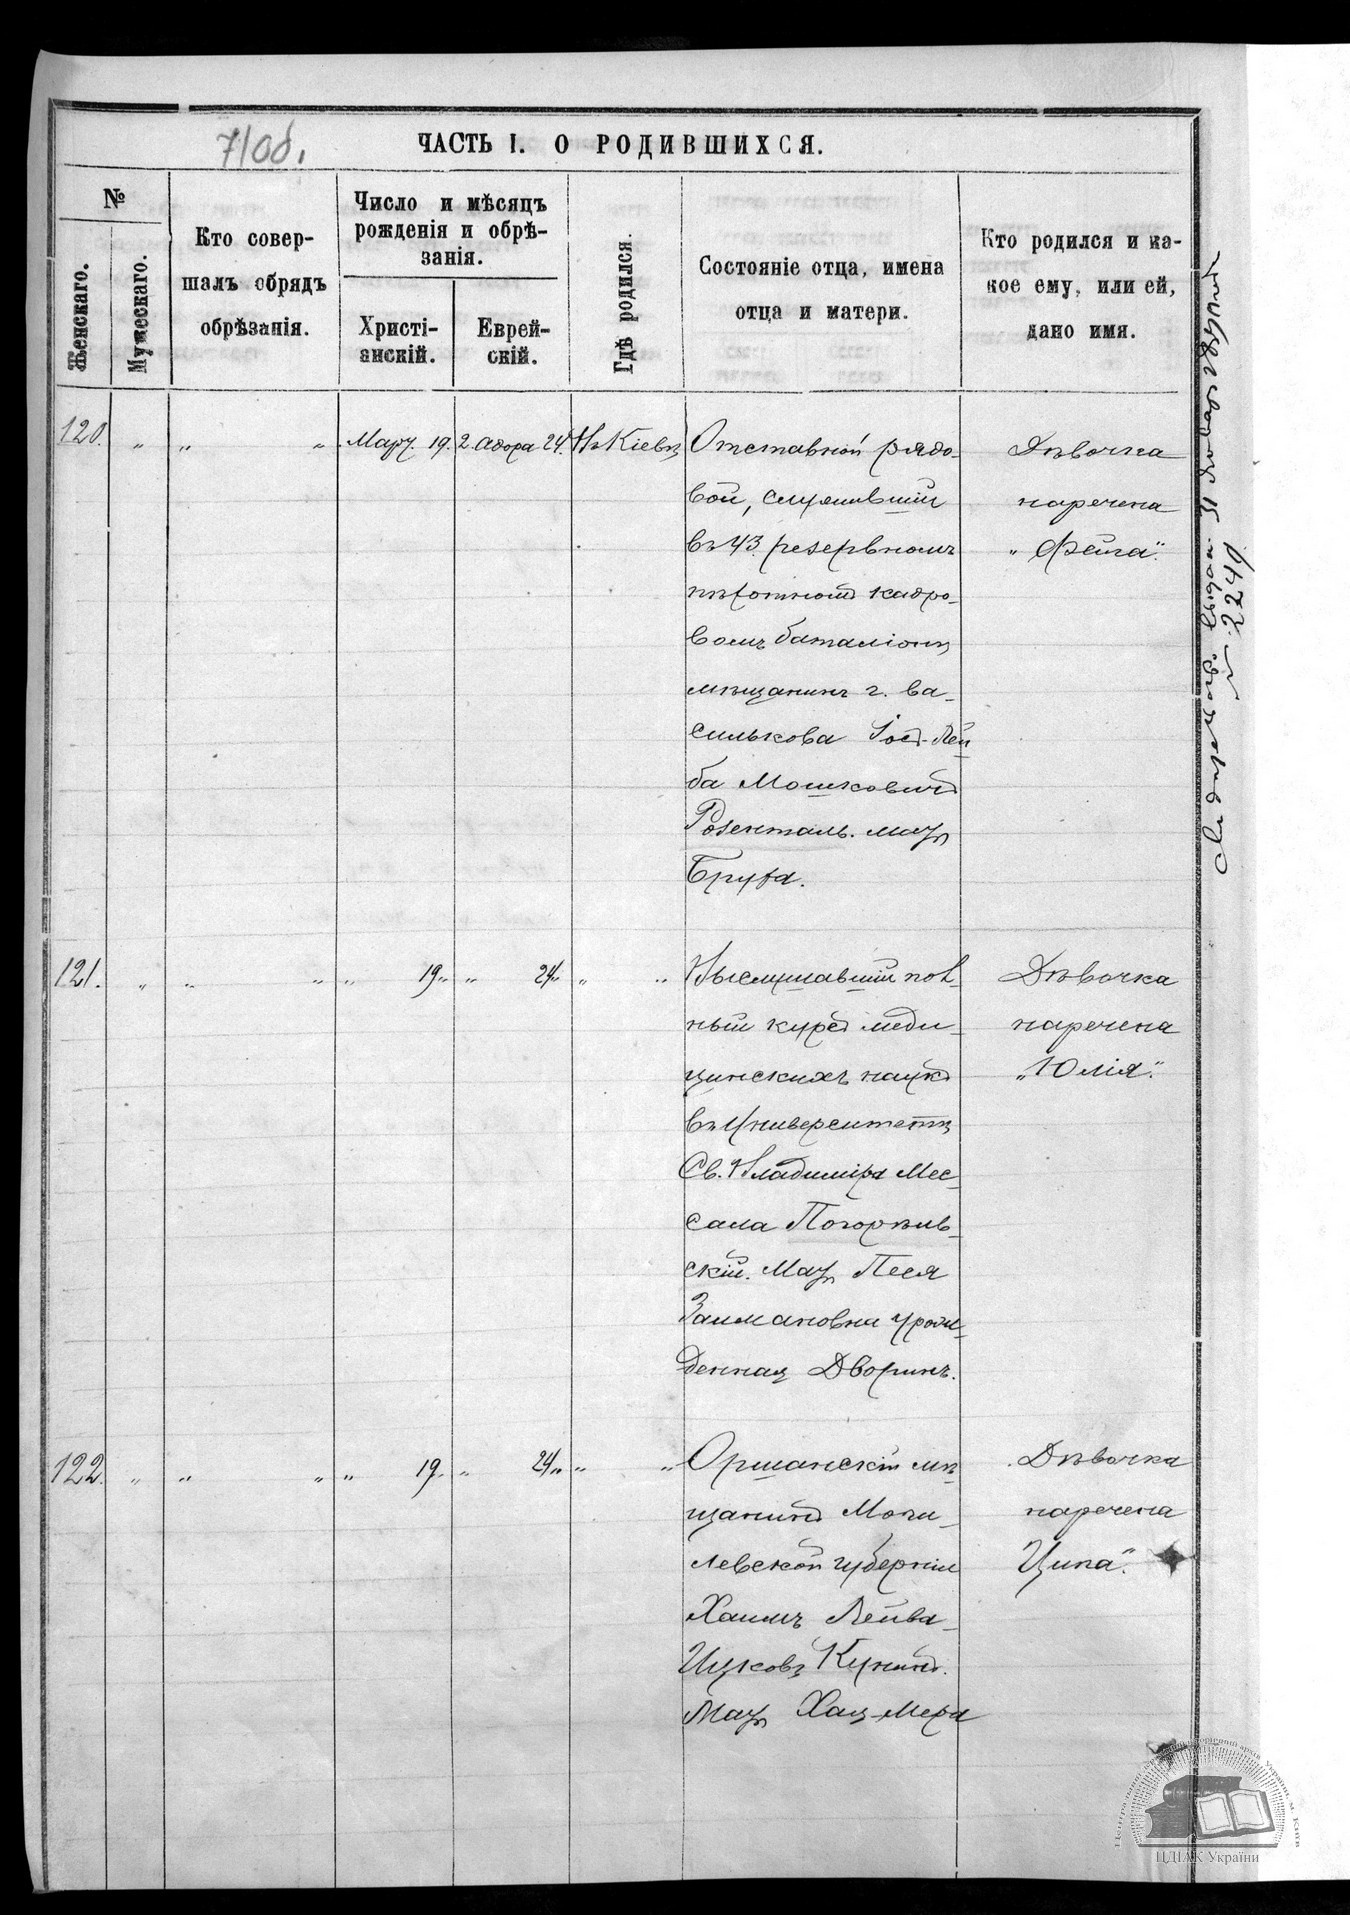 71об.
ЧАСТЬ I. О РОДИВШИХСЯ.
№
Женскаго.
Мужескаго.
Кто совер-
шалъ обрядъ
обрѣзанія.
Число и мѣсяцъ
рожденія и обрѣ-
занія.
Христі-
анскій.
Еврей-
скій.
Гдѣ родился.
Состояніе отца, имена
отца и матери.
Кто родился и ка-
кое ему, или ей,
дано имя.
120. " " " Март. 19. 2. Адора 24. Въ Кіевѣ
Отставной рядо-
вой, служившій
въ 43. резервномъ
пѣхотномъ кадро-
вомъ баталіонѣ
мѣщанинъ г. Ва-
силькова Іосъ-Лей-
ба Мошковичъ
Розенталь. мать
Бруха.
Дѣвочка
наречена
"Фейга".
121. " " " " 19. " " 24. " " "
Выслушавшій пол-
ный курсъ меди-
цинскихъ наукъ
въ Университетѣ
Св. Владиміра Мес-
сала Погорѣль-
скій. Мать Песя
Залмановна урож-
денная Дворинъ.
Дѣвочка
наречена
"Юлія".
122. " " " " 19. " 24. " " "
Оршанскій мѣ-
щанинъ Моги-
левской губерніи
Хаимъ Лейба
Ицковъ Кунинъ.
Мать Хая-Мера
Дѣвочка
наречена
Ципа".
выдан. 31
№ 2249
ЦДІАК України